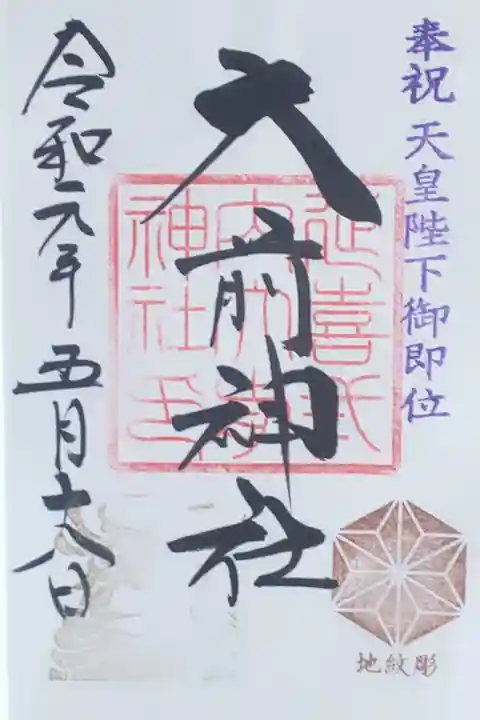 奉祝 天皇陛下御即位
大前神社
延喜式内大前神社印
令和元年 五月十八日
地紋彫